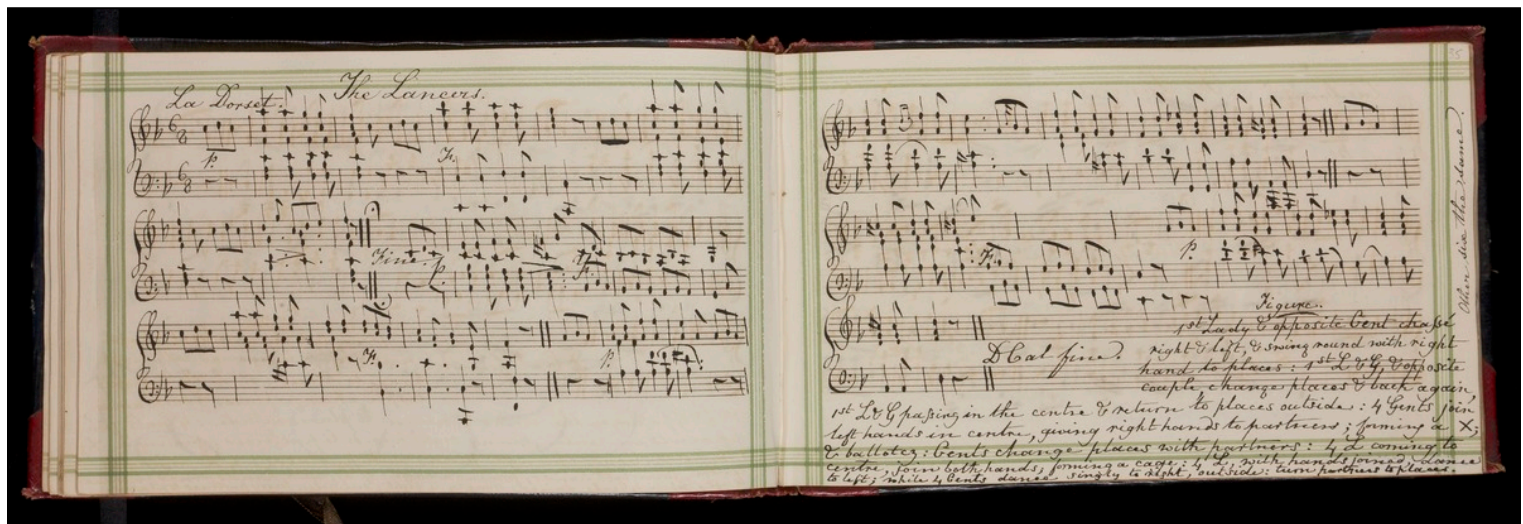 The Lancers.
La Dorset.
6
8
p.
F.
6
8
Fine. p.
F.
F.
p.
25
3
F.
p.
D Cal fine.
Figure.
1st Lady & opposite Gent chassé
right & left, & swing round with right
hand to places : 1st L & G, & opposite
couple change places & back again,
1st L & G passing in the centre & return to places outside : 4 Gents join
left hands in centre, giving right hands to partners ; forming a X ;
& ballotez : Gents change places with partners : 4 L coming to
centre, join both hands, forming a cage : 4 L, with hands joined, dance
to left ; while 4 Gents dance singly to right, outside : turn partners to places.
Other six the same.